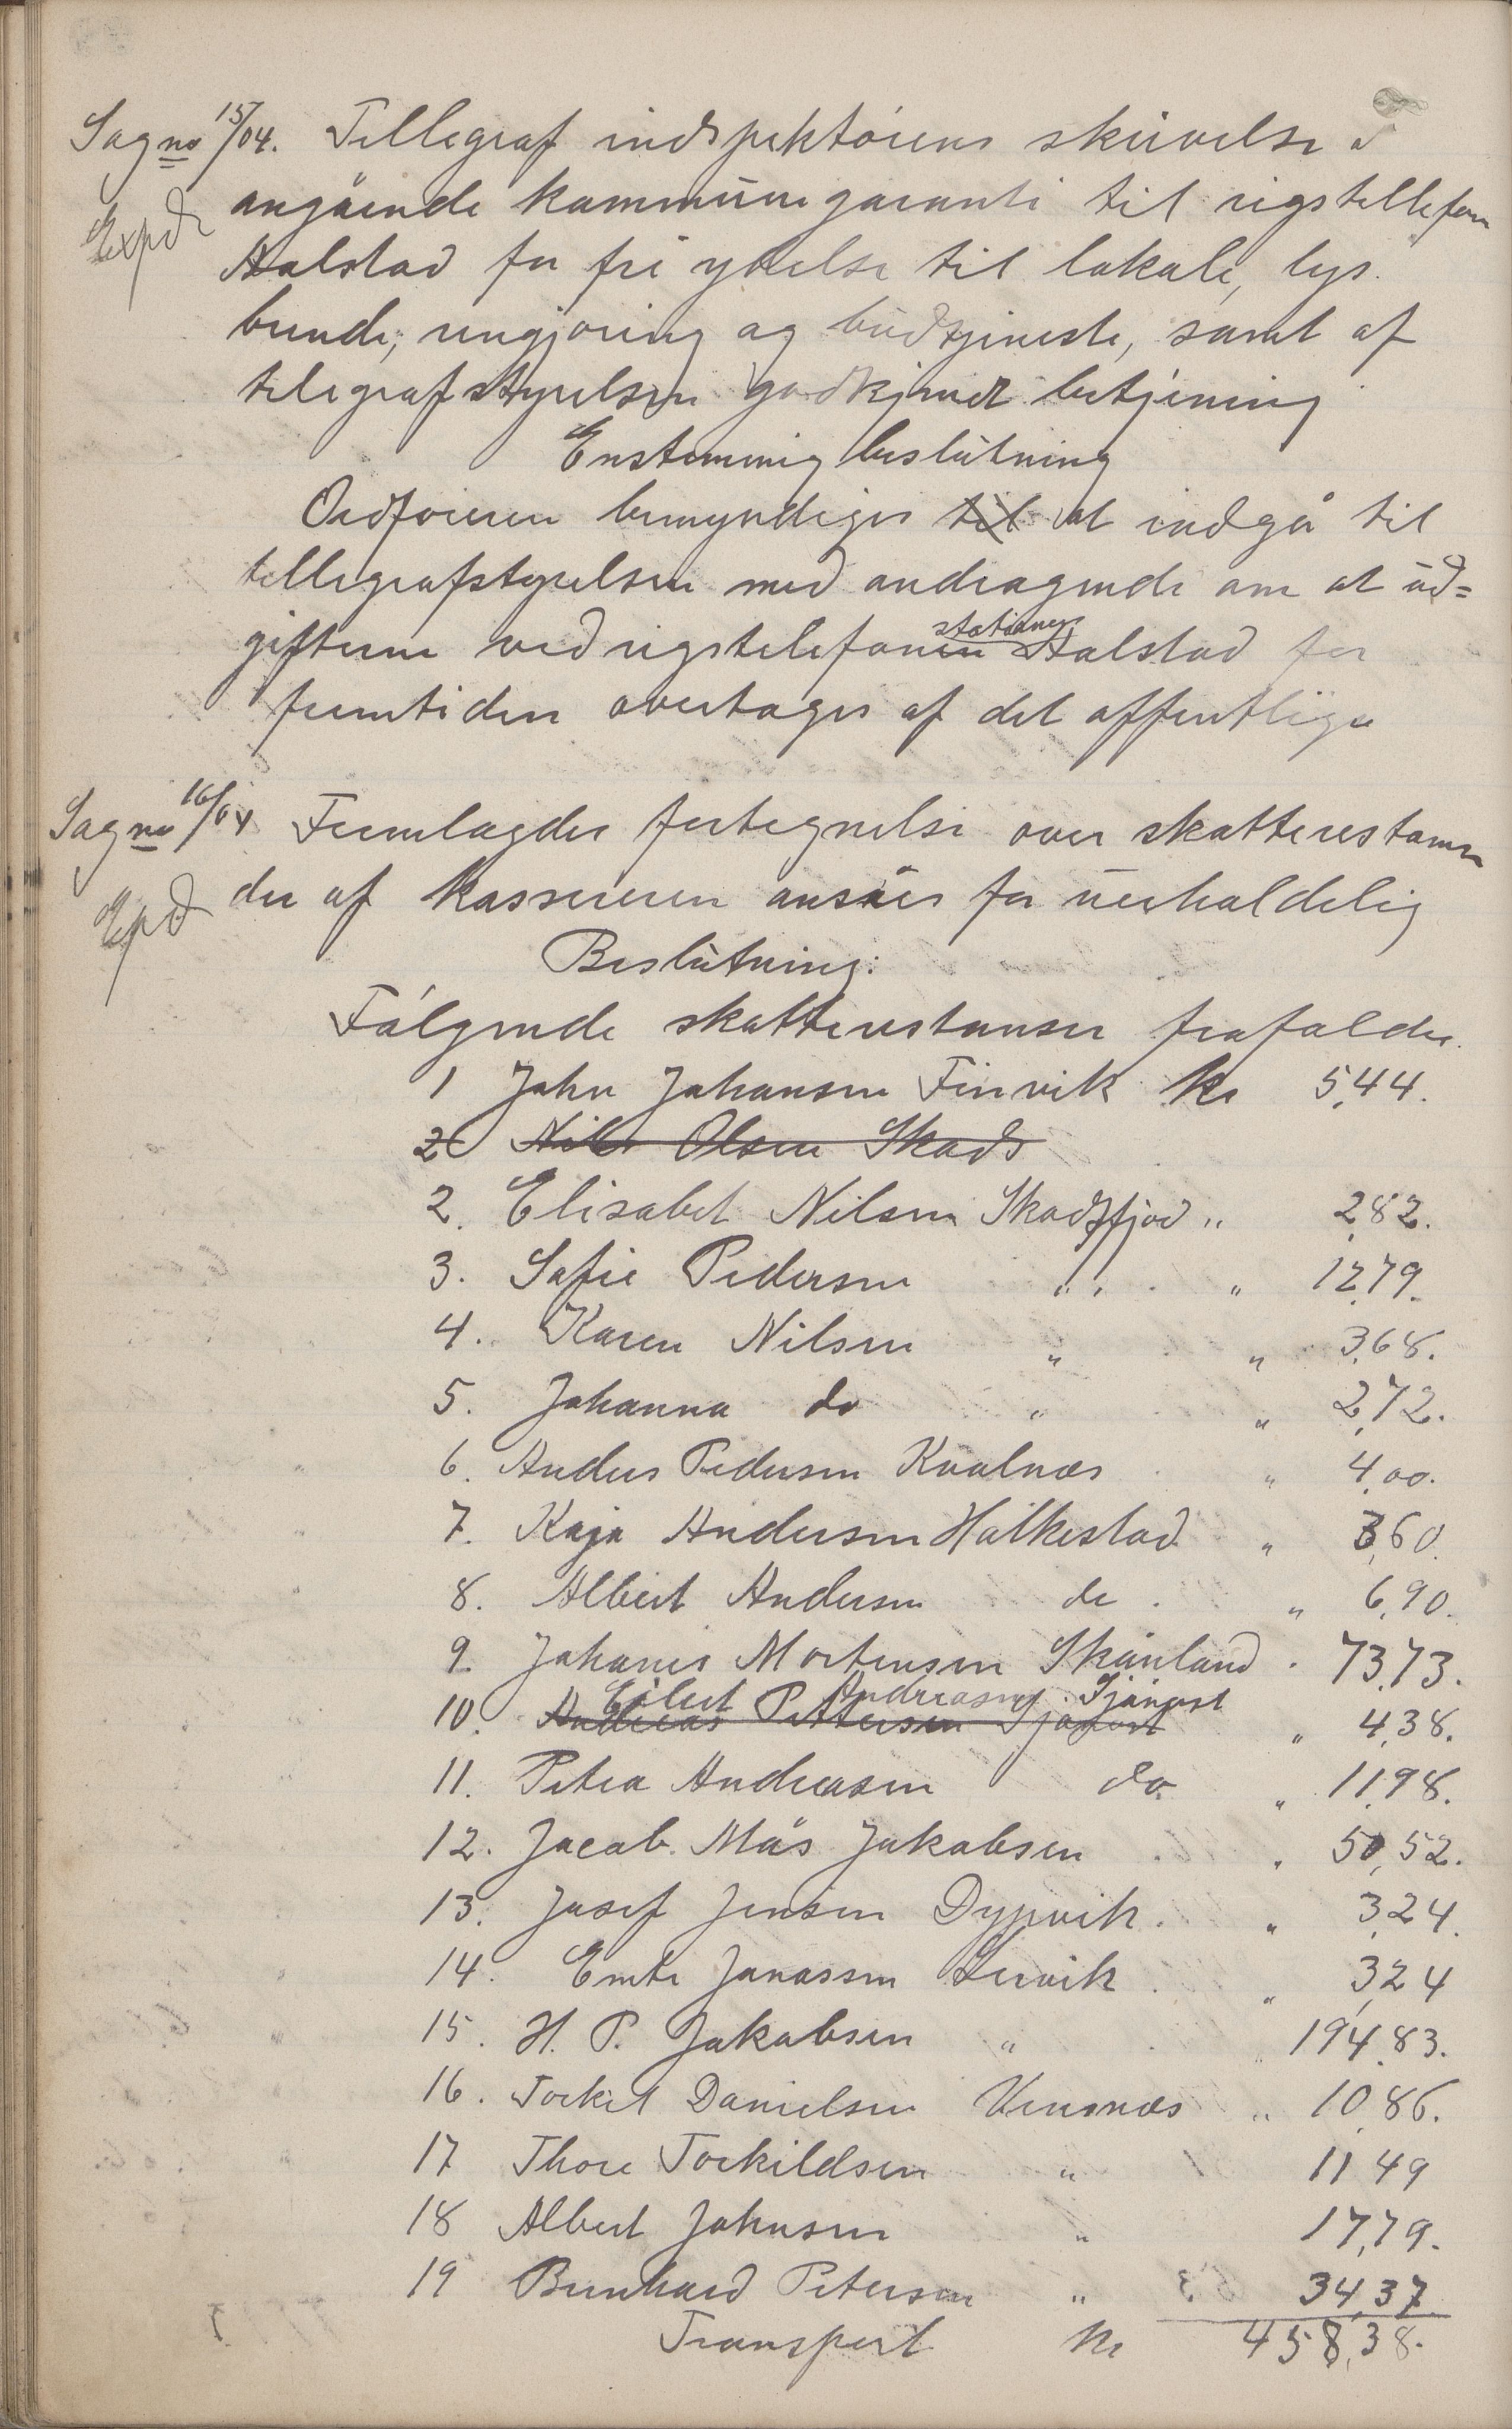 Sag no 15/04. Tellegraf indspektørens skrivelse
Expd
angående kommunegaranti til rigstellefon
Halstad for fri ydelse til lokale, lys.
brende, rengjøring og budtjeneste, samt af
telegrafstyrelsen godkjendt betjening
Enstemmig beslutning
Ordføreren bemyndiges til at indgå til
tellegrafstyrelsen med andragende om at ud=
gifterne ved rigstelefonen stationen Halstad for
fremtiden overtages af det offentlige
Sag no 16/04 Fremlagdes fortegnelse over skatterestanser
Epd
der af kassereren ansåes for uerholdelig
Beslutning:
Følgende skatterestanser frafaldes.
1 John Johansen Finvik kr 5,44.
2 Nils Olsen Skods
2. Elisabet Nilsen Skodsfjod " 2,82.
3. Sofie Pedersen " " 12,79.
4. Karen Nilsen " " 3,68.
5. Johanna do " " 2,72.
6. Anders Pedersen Kvalnæs " 4,00.
7. Kaja Andersen Hålkestad " 3,60.
8. Albert Andersen do " 6,90.
9. Johanes Mortensen Skånland " 73,73.
Eilert Andreasen Sjånest
10. Andreas Pettersen Sjånest " 4,38.
11. Petra Andreasen do. " 11,98.
12. Jacob. Mås Jakobsen " 50,52.
13. Josef Jensen Dypvik. " 3,24.
14. Emte Jonassen Lervik " 3,24
15. H. P. Jakobsen " " 194,83.
16. Torkel Danielsen Vensnæs " 10,86.
17 Thore Torkildsen " 11 49
18 Albert Johnsen " 17,79.
19 Bernhard Petersen " 34,37
Transport kr 458,38.